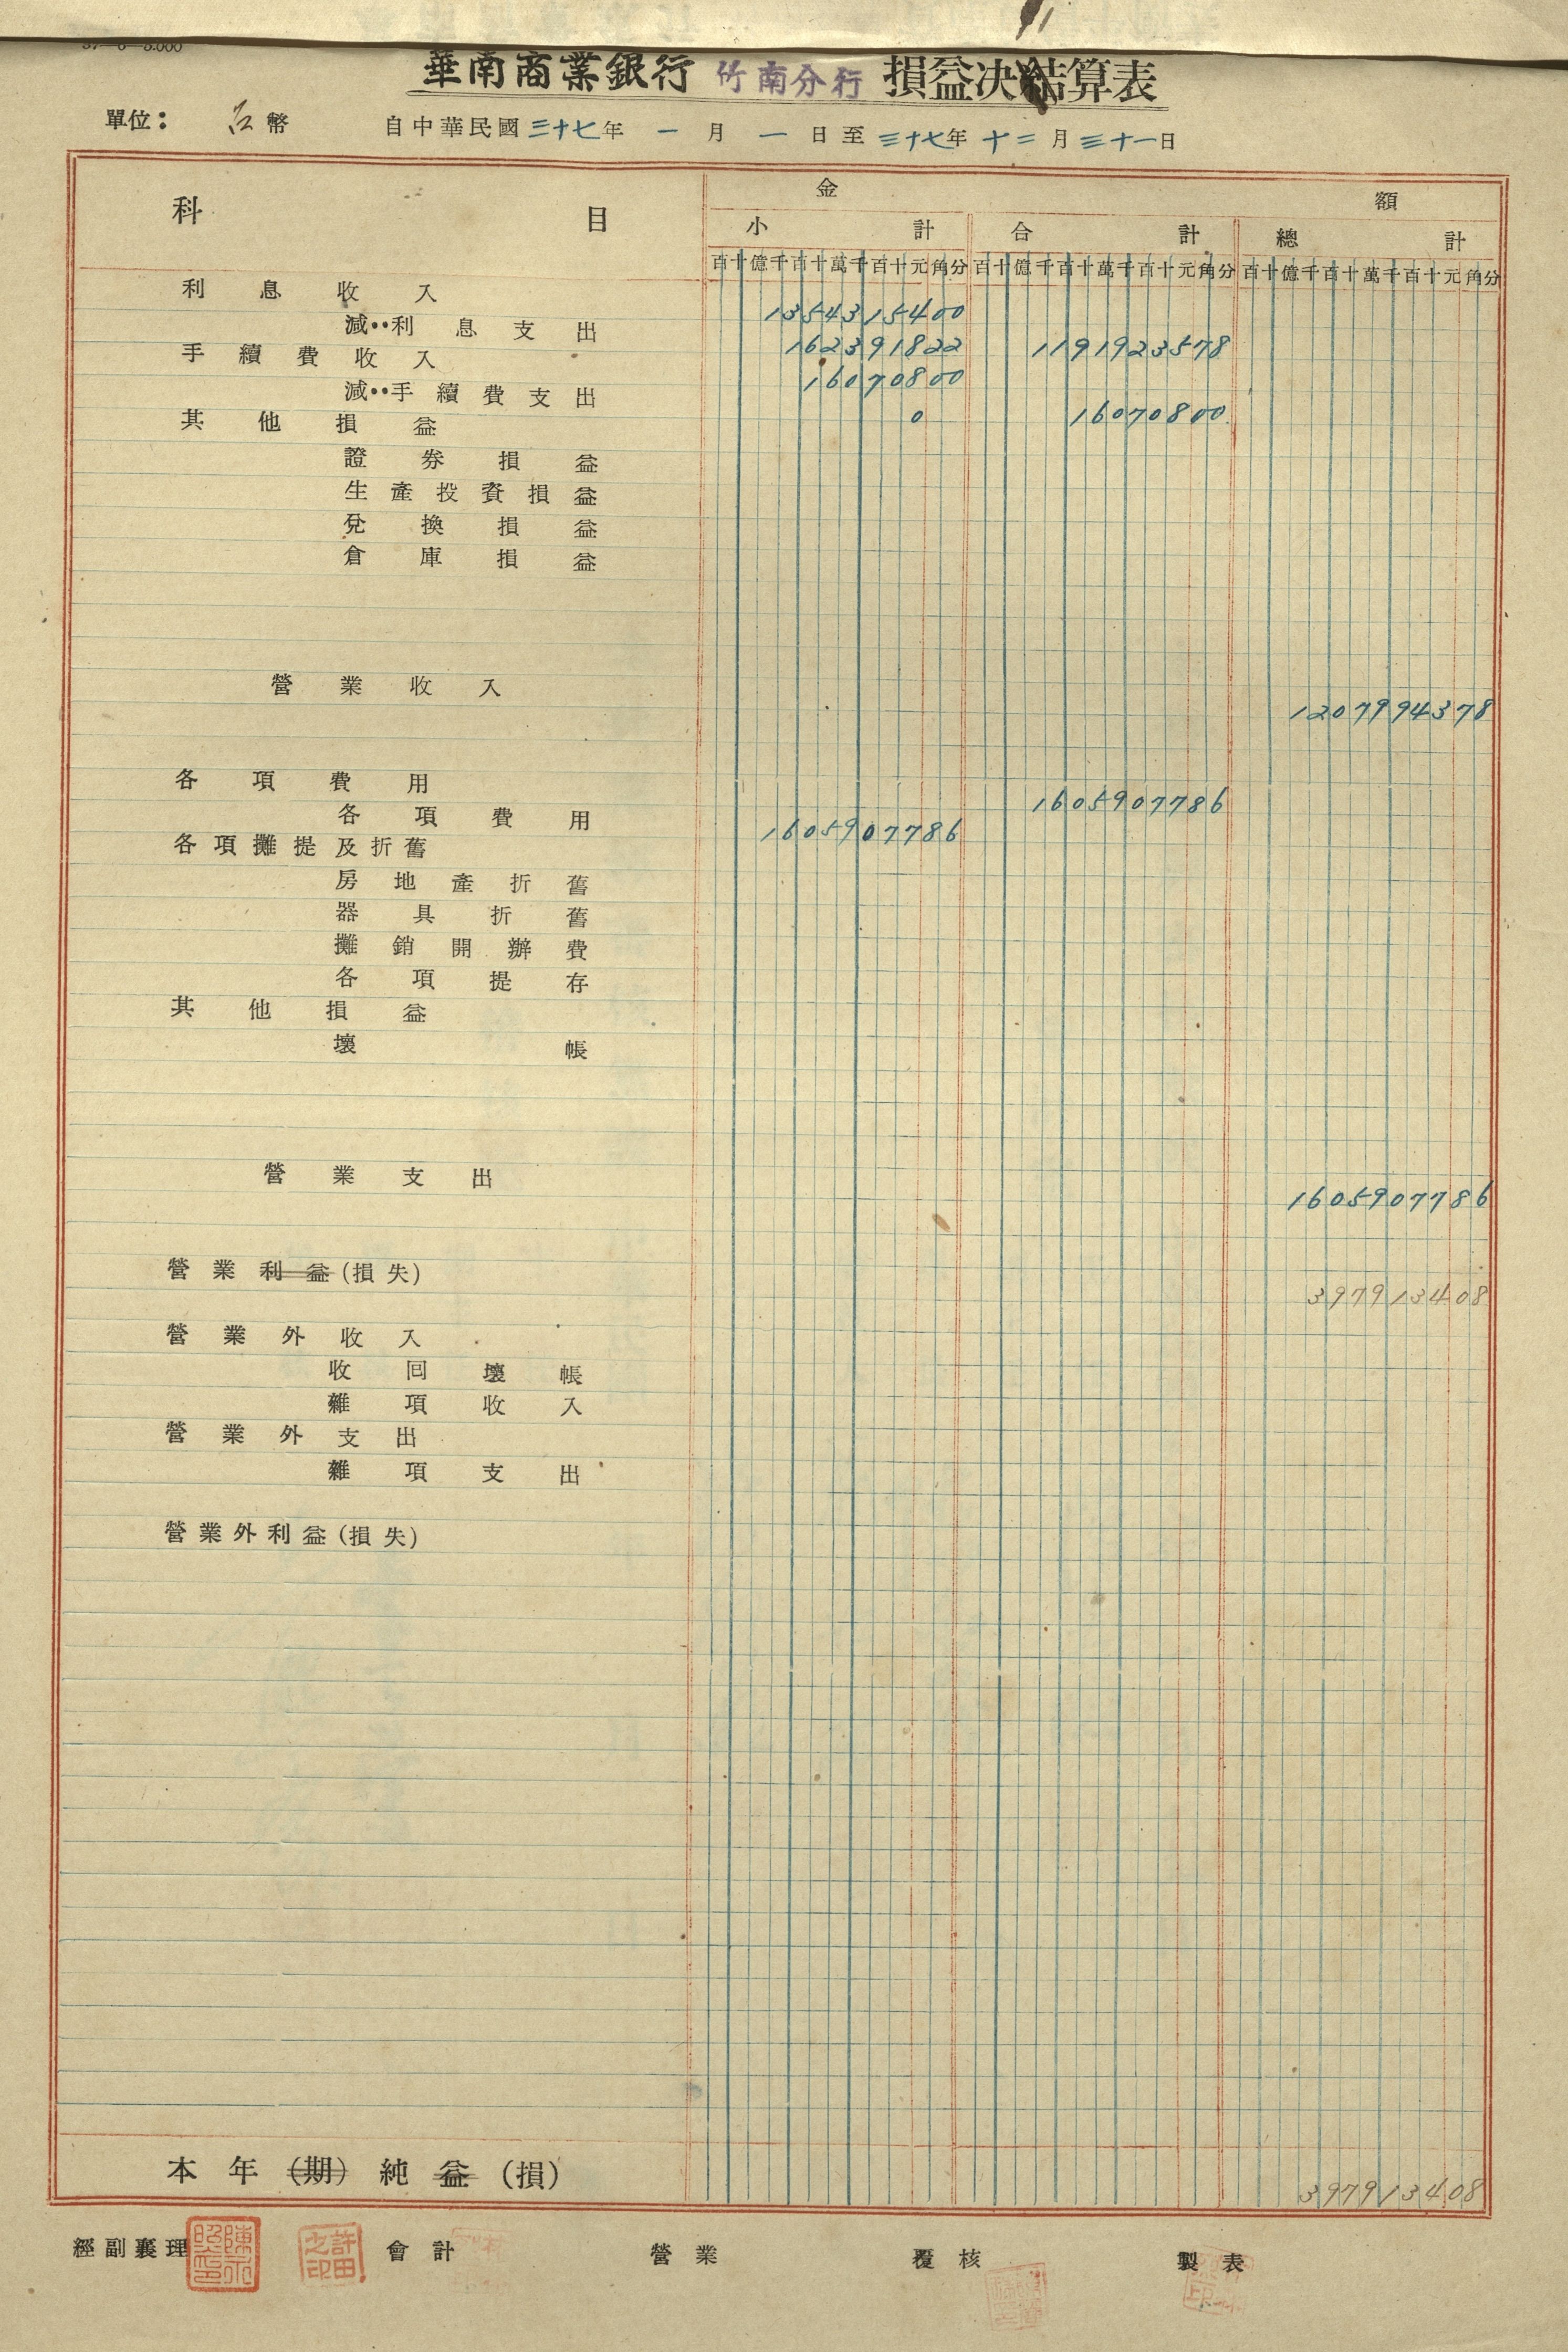 華南商業銀行 竹南分行 損益決算表
單位： 台幣 自中華民國三十七年 一 月 一 日至三十七年十二月三十一日
科 目 金 額
小 計 合 計 總 計
百十億千百十萬千百十元角分 百十億千百十萬千百十元角分 百十億千百十萬千百十元角分
利息收入 1354315400
減：利息支出 162391822 1191923578
手續費收入 16070800
減：手續費支出 0 16070800
其他損益
證券損益
生產投資損益
兌換損益
倉庫損益
營業收入 1207994378
各項費用 1605907786
各項費用 1605907786
各項攤提及折舊
房地產折舊
器具折舊
攤銷開辦費
各項提存
其他損益
壞帳
營業支出 1605907786
營業利益(損失) 397913408
營業外收入
收回壞帳
雜項收入
營業外支出
雜項支出
營業外利益(損失)
本年(期)純益(損) 397913408
經副襄理 會計 營業 覆核 製表